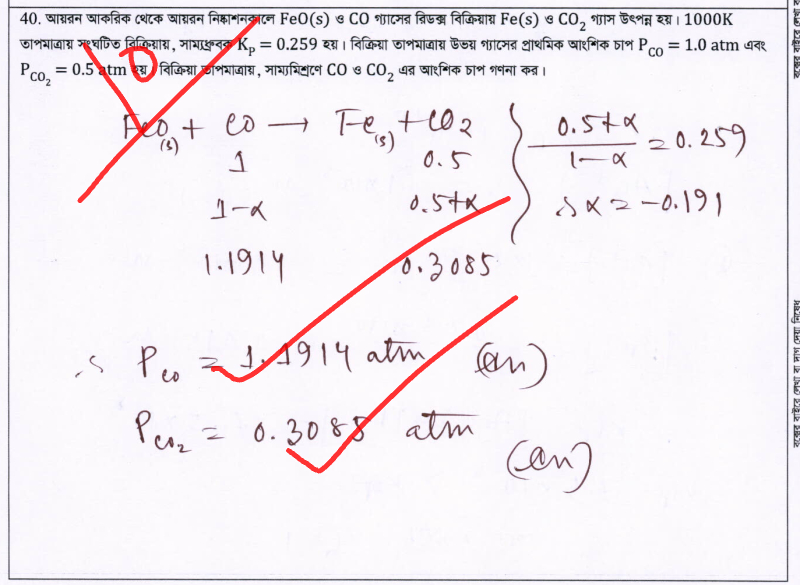 40. আয়রন আকরিক থেকে আয়রন নিষ্কাশনকালে FeO(s) ও CO গ্যাসের রিডক্স বিক্রিয়ায় Fe(s) ও CO₂ গ্যাস উৎপন্ন হয়। 1000K
তাপমাত্রায় সংঘটিত বিক্রিয়ায়, সাম্যধ্রুবক Kₚ = 0.259 হয়। বিক্রিয়া তাপমাত্রায় উভয় গ্যাসের প্রাথমিক আংশিক চাপ P_CO = 1.0 atm এবং
P_CO₂ = 0.5 atm হয়। বিক্রিয়া তাপমাত্রায়, সাম্যমিশ্রণে CO ও CO₂ এর আংশিক চাপ গণনা কর।
0
FeO(s) + CO → Fe(s) + CO2
1 0.5
1-α 0.5+α
1.1914 0.3085
0.5+α / 1-α = 0.259
∴ α = -0.191
∴ P_CO = 1.1914 atm (an)
P_CO₂ = 0.3085 atm
(an)